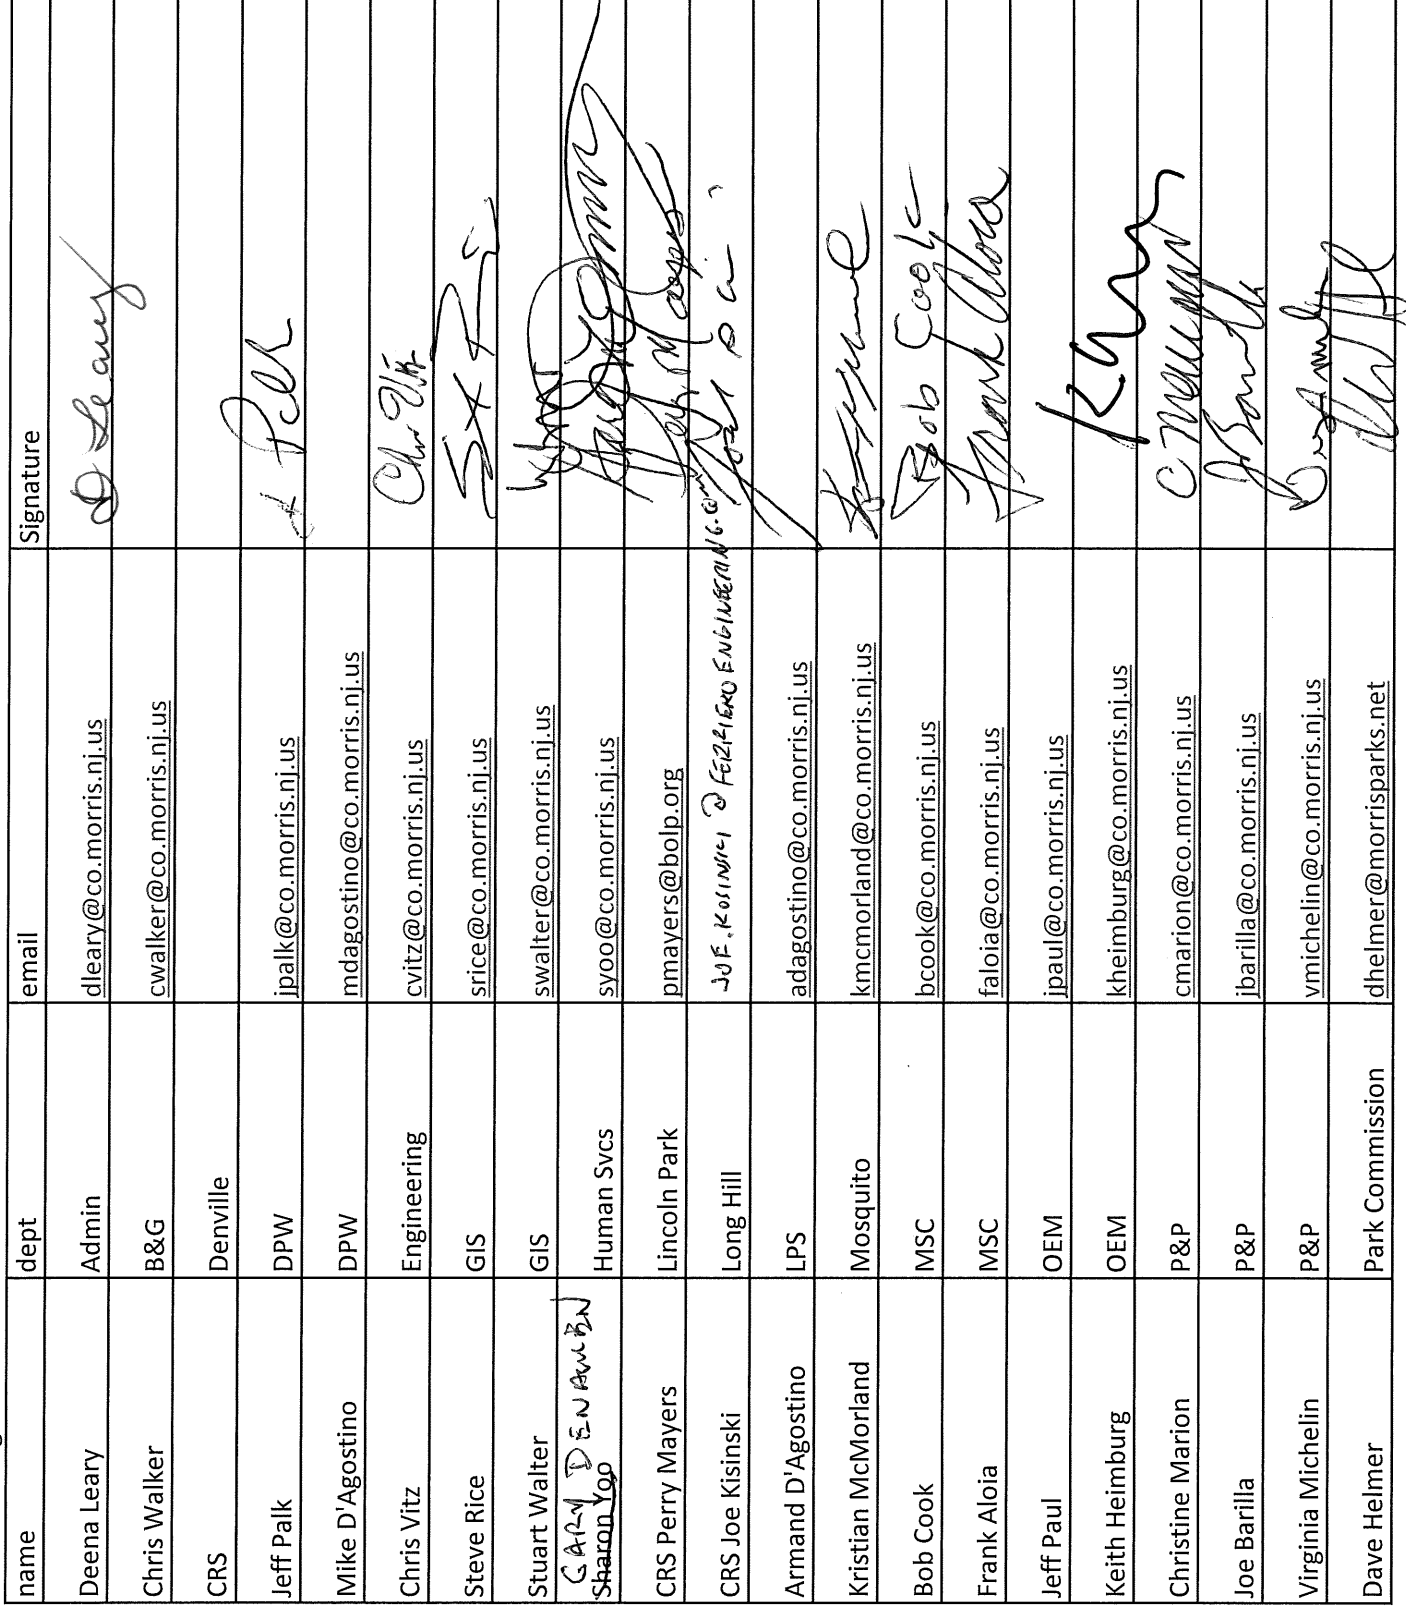 name dept email Signature
Deena Leary Admin dleary@co.morris.nj.us D Leary
Chris Walker B&G cwalker@co.morris.nj.us
CRS Denville
Jeff Palk DPW jpalk@co.morris.nj.us
Mike D'Agostino DPW mdagostino@co.morris.nj.us
Chris Vitz Engineering cvitz@co.morris.nj.us Chris Vitz
Steve Rice GIS srice@co.morris.nj.us
Stuart Walter GIS swalter@co.morris.nj.us
GARY
Sharon Yoo Human Svcs syoo@co.morris.nj.us
CRS Perry Mayers Lincoln Park pmayers@bolp.org
CRS Joe Kisinski Long Hill JOE.KOSINSKI@FERRIEROENGINEERING.COM
Armand D'Agostino LPS adagostino@co.morris.nj.us
Kristian McMorland Mosquito kmcmorland@co.morris.nj.us
Bob Cook MSC bcook@co.morris.nj.us Bob Cook
Frank Aloia MSC faloia@co.morris.nj.us Frank Aloia
Jeff Paul OEM jpaul@co.morris.nj.us
Keith Heimburg OEM kheimburg@co.morris.nj.us
Christine Marion P&P cmarion@co.morris.nj.us
Joe Barilla P&P jbarilla@co.morris.nj.us
Virginia Michelin P&P vmichelin@co.morris.nj.us
Dave Helmer Park Commission dhelmer@morrisparks.net